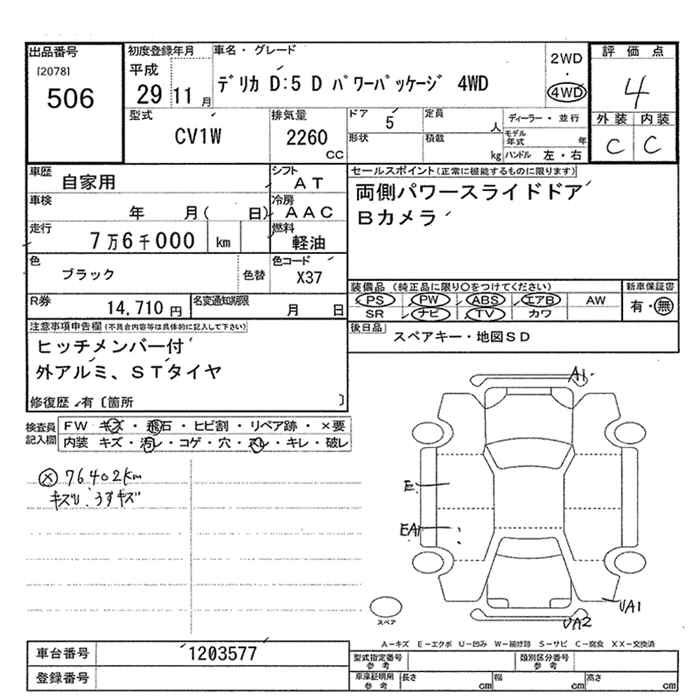 出品番号
[2078]
506
初度登録年月
平成
29 11月
車名・グレード
デリカ D:5 D パワーパッケージ 4WD
2WD
・
4WD
評価点
4
外装 内装
C C
型式
CV1W
排気量
2260
CC
ドア
5
定員
人
形状
積載
kg
ディーラー・並行
モデル年式
年
ハンドル 左・右
車歴
自家用
シフト
AT
車検
年 月( 日)
冷房
AAC
走行
7万6千000 km
燃料
軽油
色
ブラック
色替
色コード
X37
R券
14,710円
名変通知期限
月 日
セールスポイント(正常に機能するものに限ります)
両側パワースライドドア
Bカメラ
装備品(純正品に限り○をつけてください)
新車保証書
PS PW ABS エアB AW
有・無
SR ナビ TV カワ
後日品
スペアキー・地図SD
注意事項申告欄(不具合内容等は具体的に記入して下さい)
ヒッチメンバー付
外アルミ、STタイヤ
修復歴・有〔箇所 〕
検査員記入欄
FW キズ・飛石・ヒビ割・リペア跡・×要
内装 キズ・汚レ・コゲ・穴・スレ・キレ・破レ
76402km
キズU、うすキズ
A1
E
EA1
UA1
UA2
スペア
A−キズ E−エクボ U−凹み W−補修跡 S−サビ C−腐食 XX−交換済
車台番号
1203577
登録番号
型式指定番号
参考
類別区分番号
参考
車庫証明用
参考
長さ cm
幅 cm
高さ cm